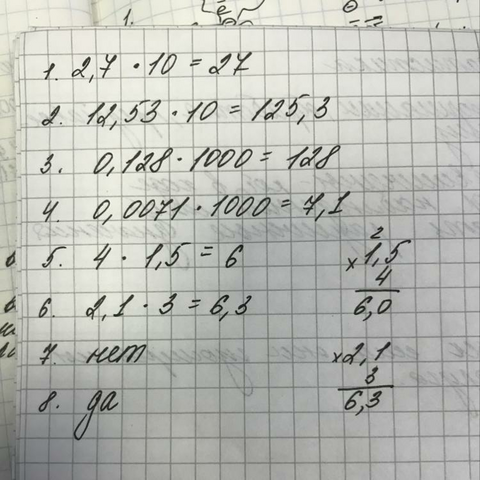 1.
1. 2,7 · 10 = 27
2. 12,53 · 10 = 125,3
3. 0,128 · 1000 = 128
4. 0,0071 · 1000 = 7,1
5. 4 · 1,5 = 6
6. 2,1 · 3 = 6,3
7. нет
8. да
2
× 1,5
4
6,0
× 2,1
3
6,3